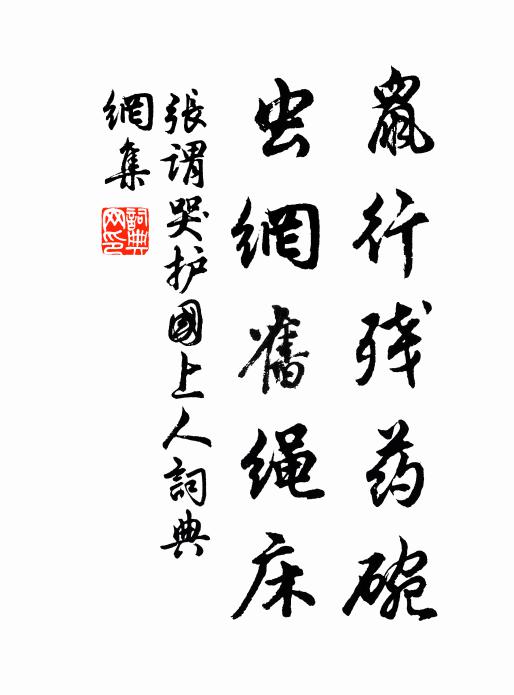 鼠行残药碗
虫網舊绳床
張謂哭护國上人詞典
網集
詞典
网印